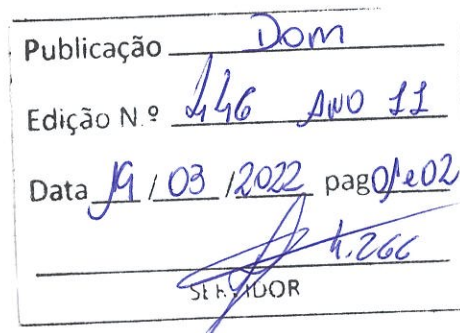 Publicação Dom
Edição N.º 446 ANO 11
Data 19 / 03 / 2022 pag 01e02
4.266
SERVIDOR